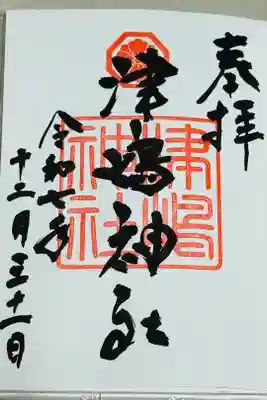 奉拝
津嶋神社
令和七年
十二月三十一日
津嶋神社